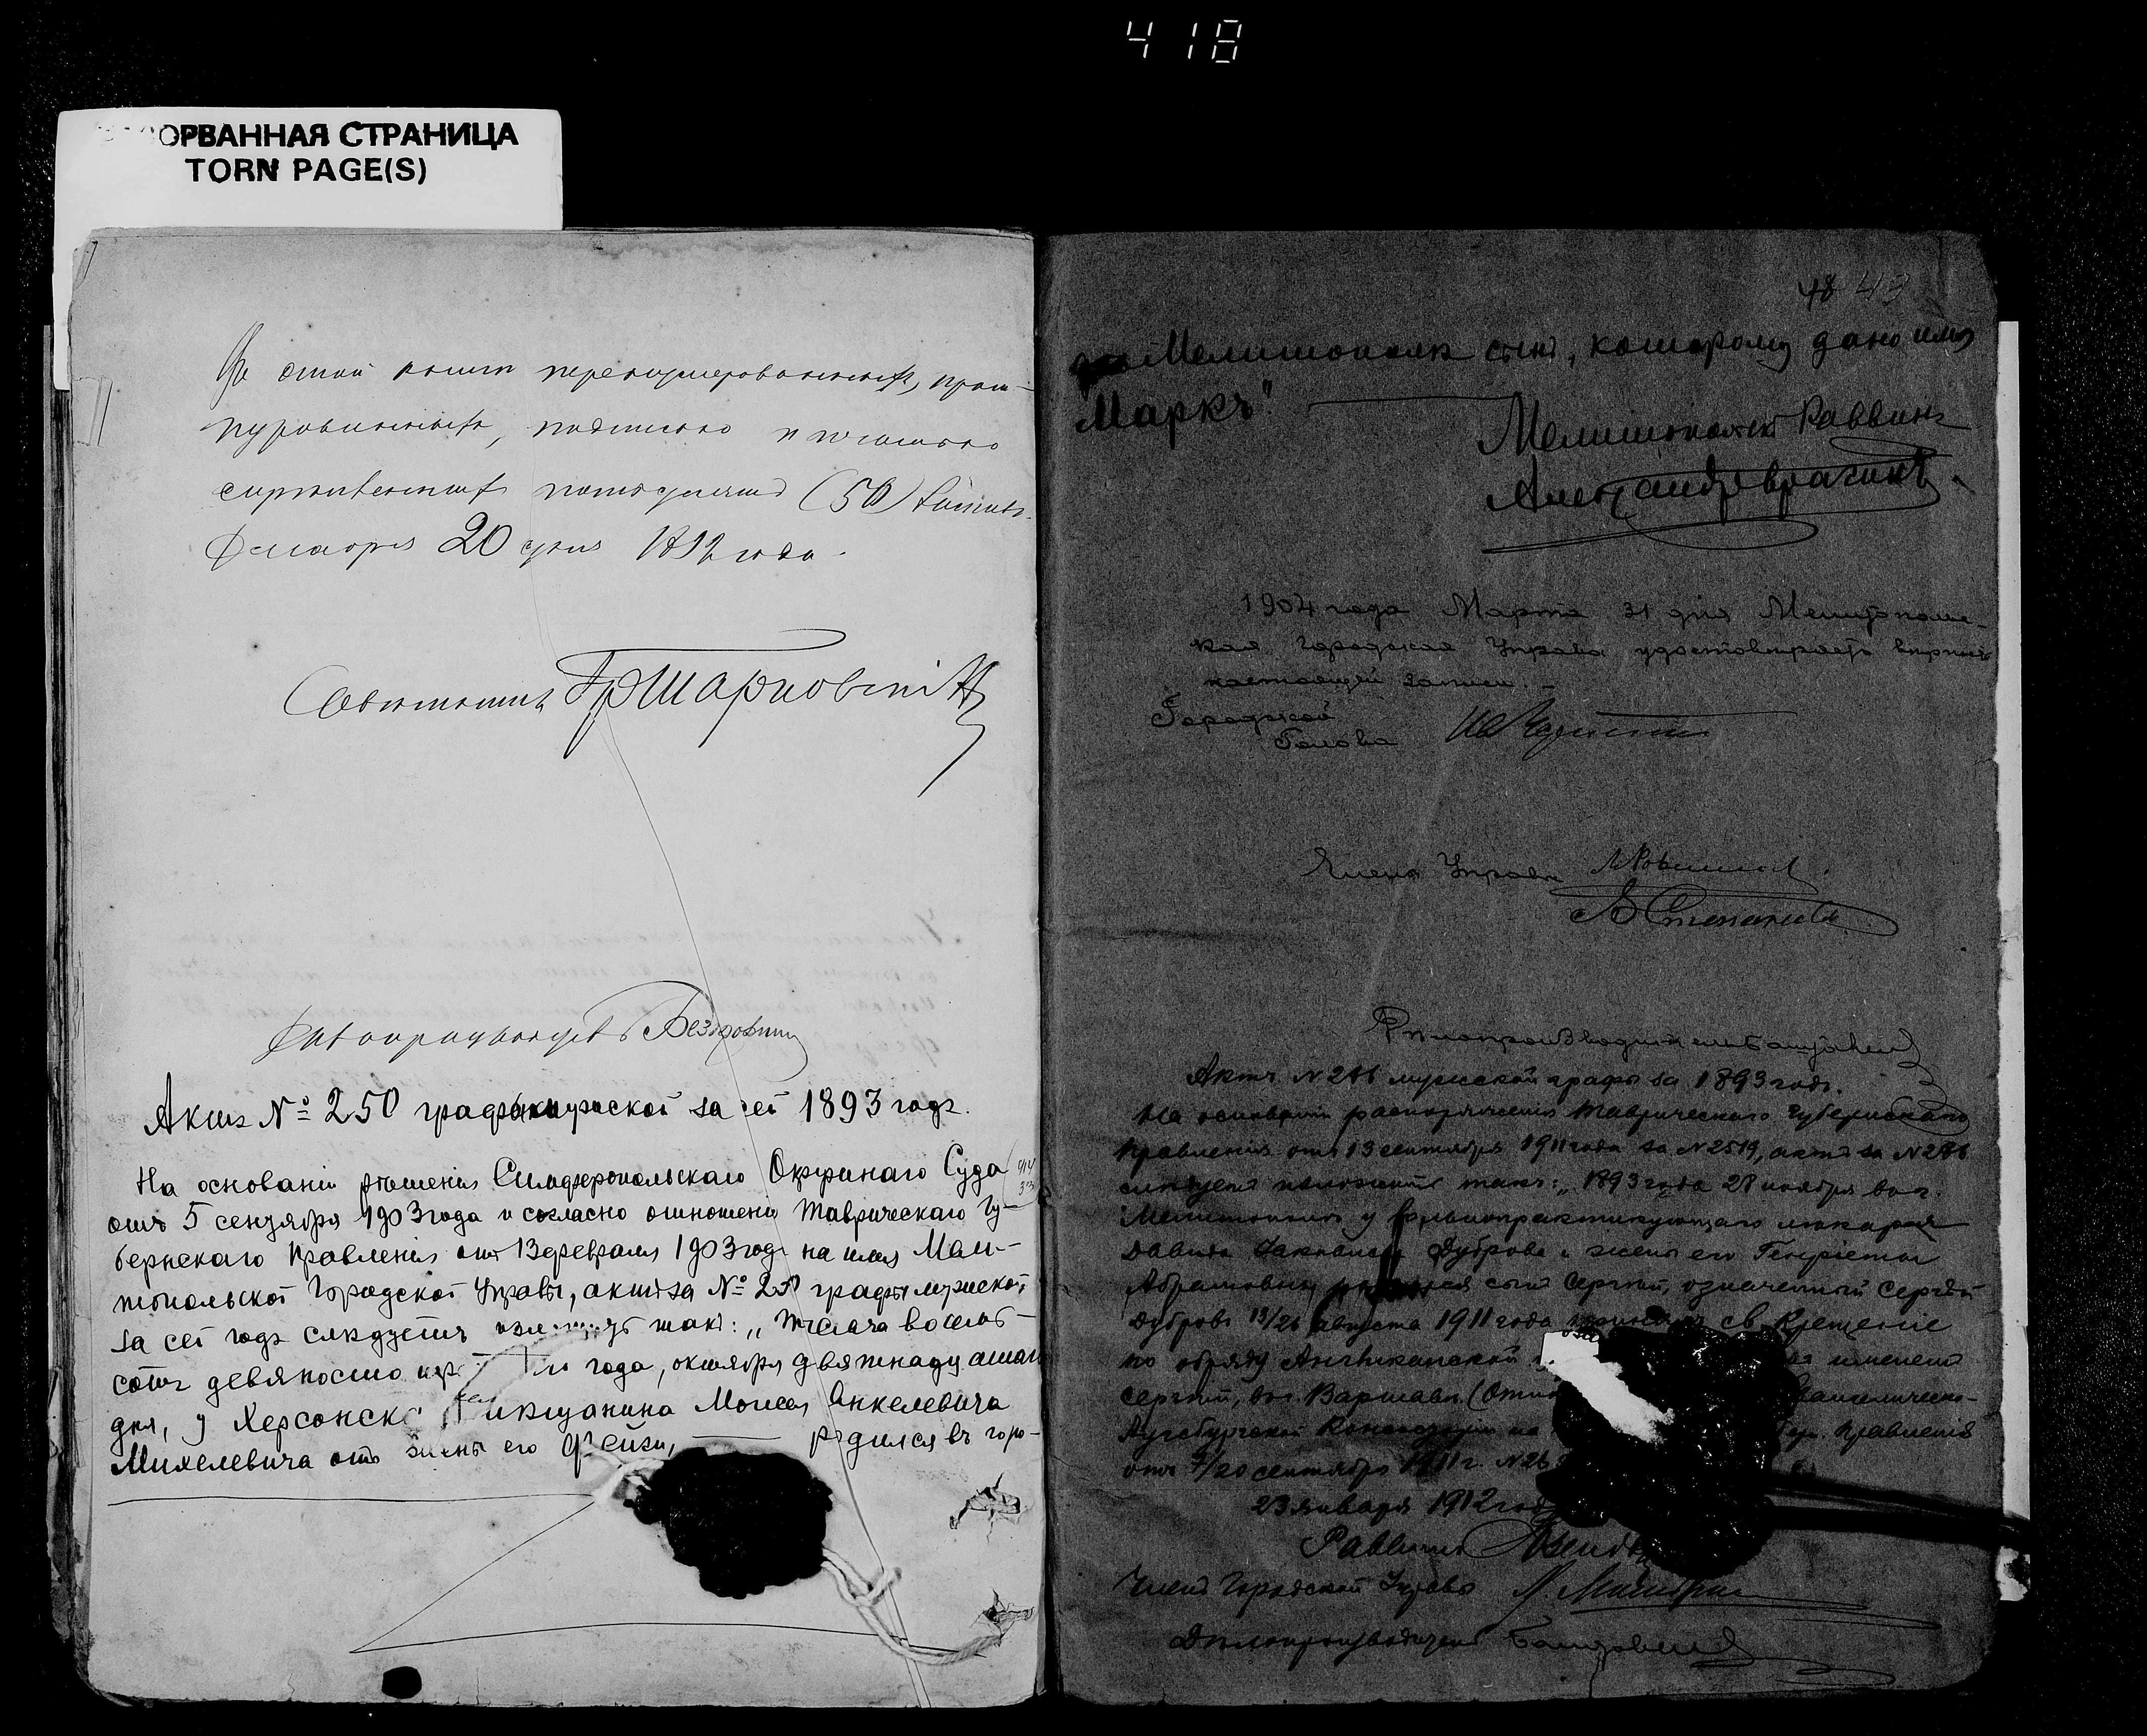 418
ОРВАННАЯ СТРАНИЦА
TORN PAGE(S)
Въ этой книгѣ перенумерованныхъ, прош-
нурованныхъ, подписью и печатью
скрѣпленныхъ пятьдесятъ (50) листовъ.
Декабря 20 дня 1892 года.
Совѣтникъ
Дѣлопроизводитель
Актъ № 250 графы мужской за сей 1893 годъ.
На основаніи рѣшенія Симферопольскаго Окружнаго Суда
отъ 5 сентября 1903 года и согласно отношенія Таврическаго Гу-
бернскаго Правленія отъ 13 февраля 1903 года на имя Мели-
топольской Городской Управы, актъ за № 250 графы мужской
за сей годъ слѣдуетъ такъ: „Тысяча восемь-
сотъ девяносто года, октября двѣнадцатаго
дня, у Херсонска Моисея Янкелевича
Михелевича отъ жены его Фейги, родился въ горо-
48 49
Мелитополѣ сынъ, которому дано имя
"Маркъ".
Мелитопольскій Раввинъ
Александръ
1904 года Марта 31 дня Мелитополь-
ская Городская Управа удостовѣряетъ вѣрность
настоящей записи.
Городской
Голова
Члены Управы
В Степановъ
Дѣлопроизводитель
Актъ № 286 мужской графы за 1893 годъ.
На основаніи распоряженія Таврическаго Губернскаго
Правленія отъ 13 сентября 1911 года за № 2519, актъ за № 286
слѣдуетъ изложить такъ: „1893 года 28 ноября въ г.
Мелитополѣ у вольнопрактикующаго лекаря
Давида Дуброва и жены его Генріеты
Абрамовны родился сынъ Сергѣй, означенный Сергѣй
Дубровъ 13/26 августа 1911 года св. Крещеніе
по обряду Англиканской именемъ
Сергѣй, въ г. Варшавѣ Евангелическо-
Аугсбургской Консисторіи на Правленія
отъ 7/20 сентября 1911 г. № 26
23 января 1912 года
Раввинъ
Членъ Городской Управы
Дѣлопроизводитель